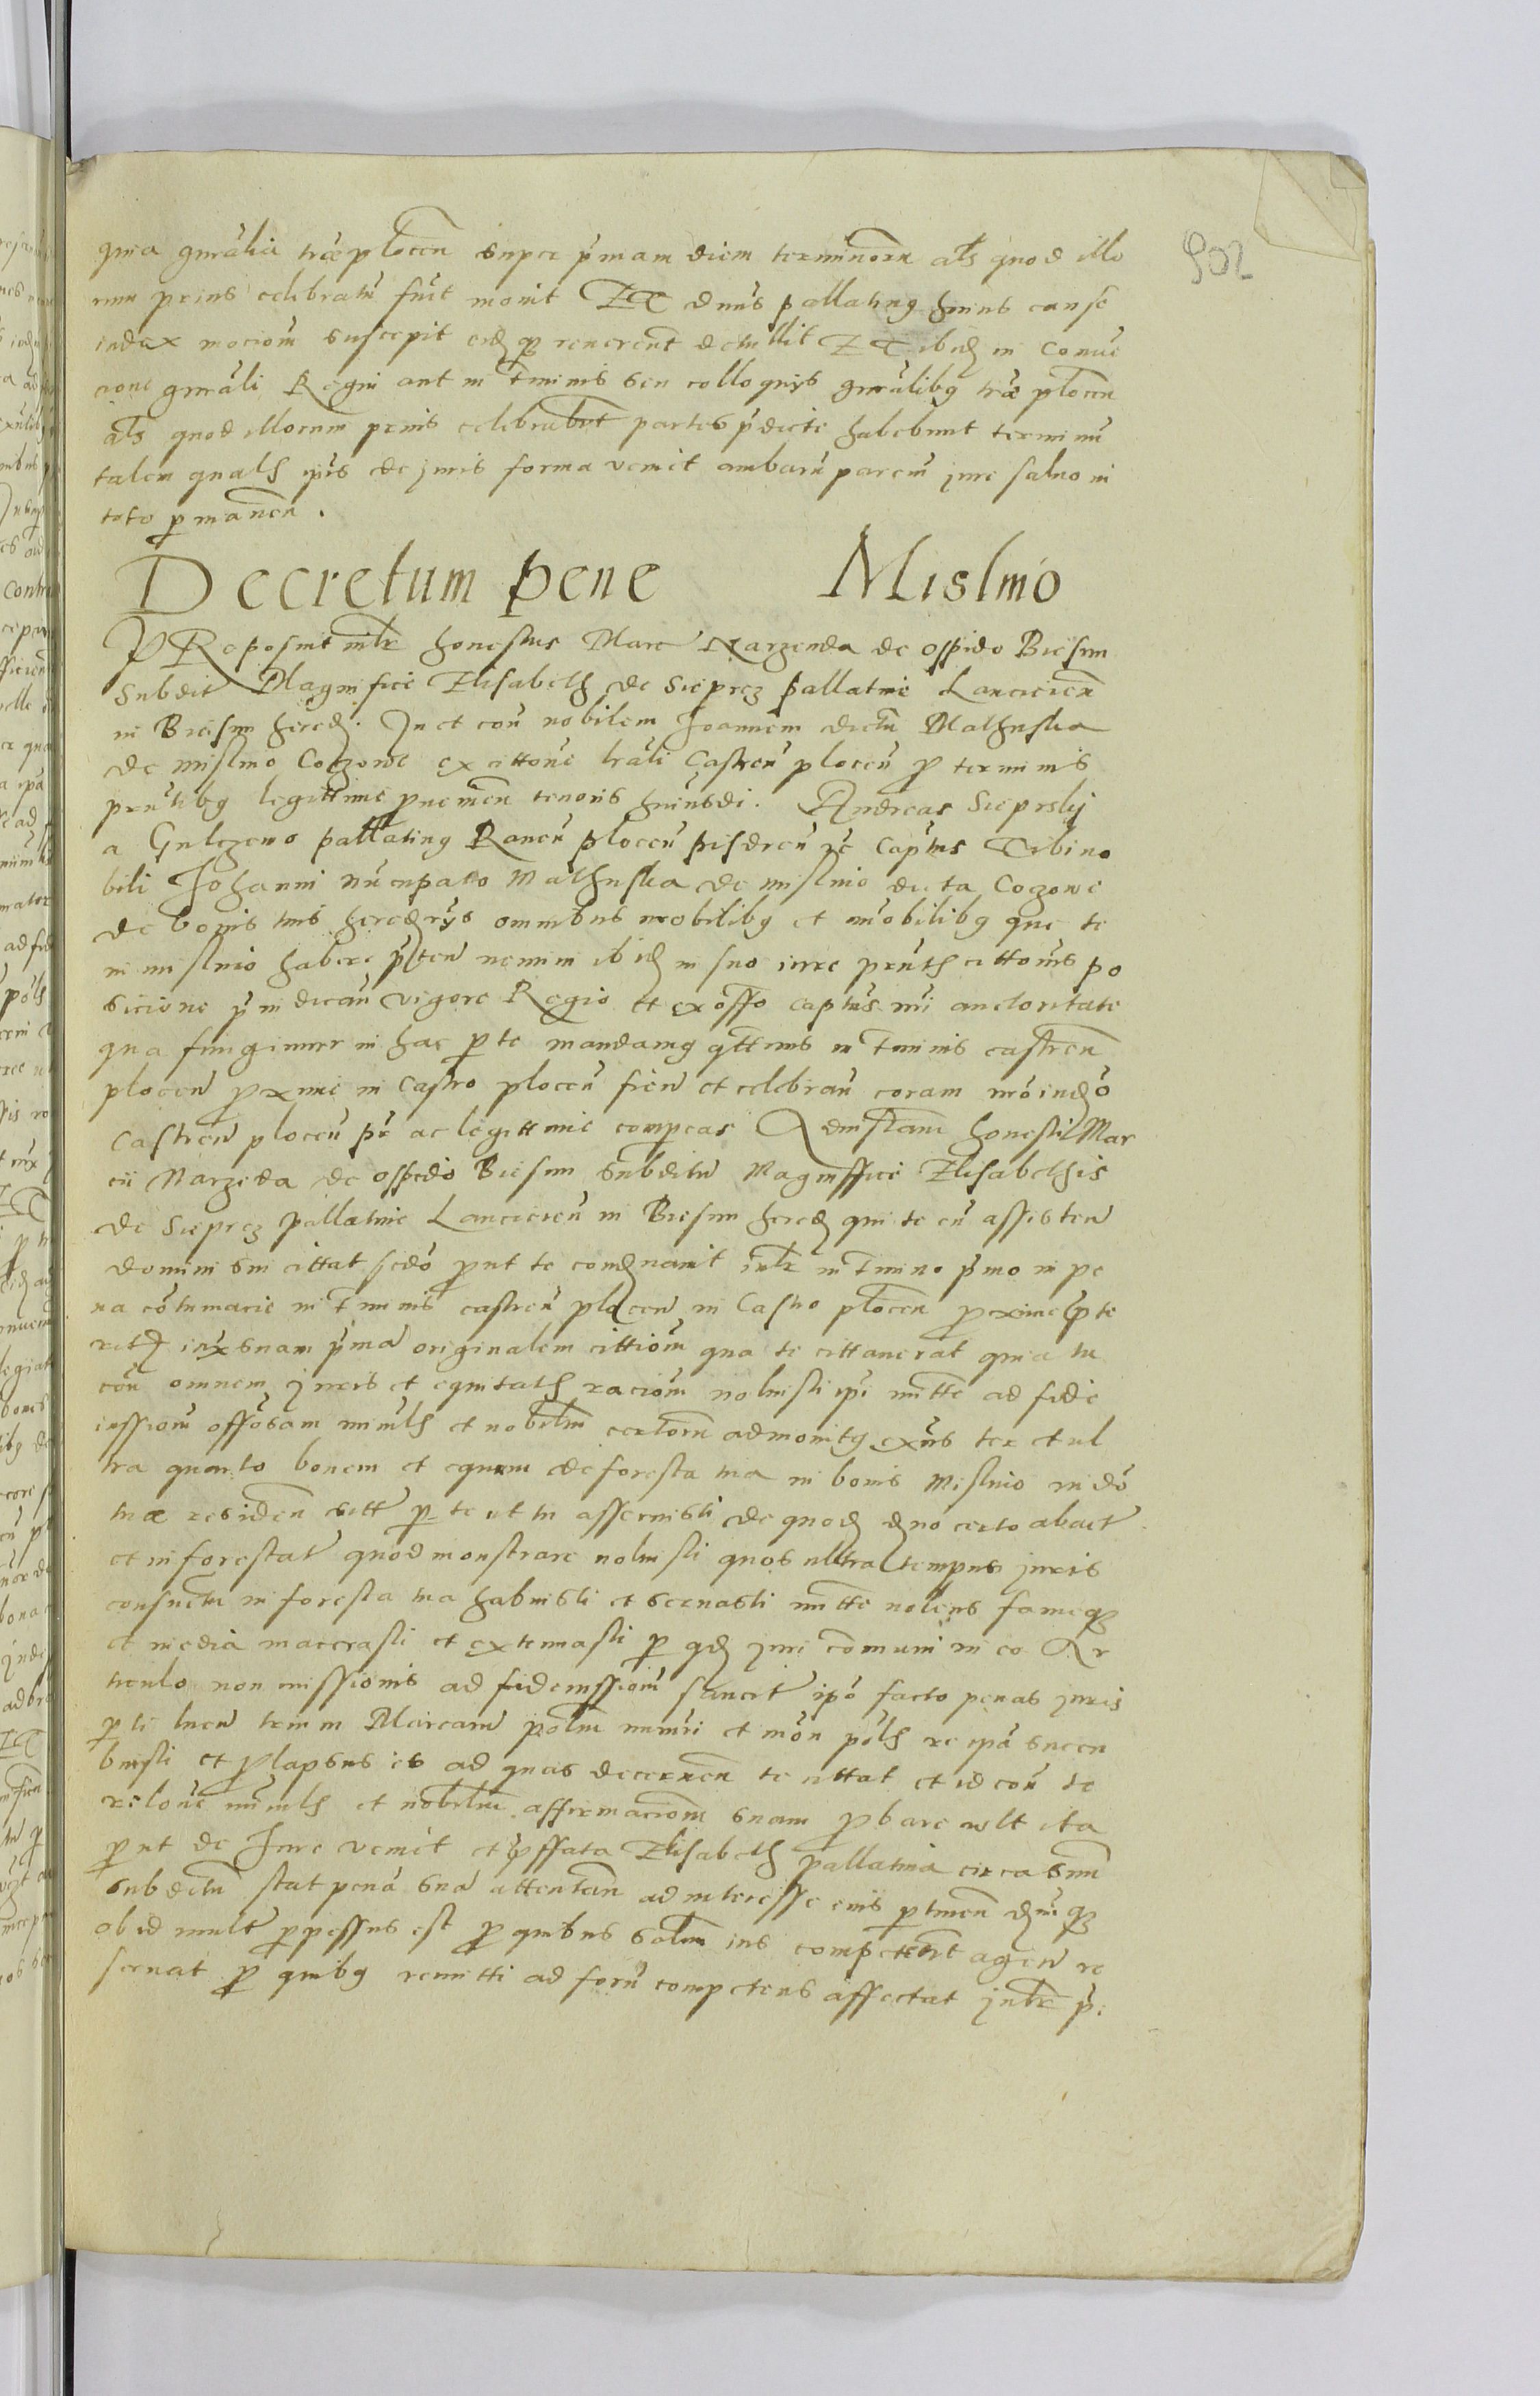 902
quia gnralia tre plocen super pmam diem terminoru als quod illo
rum prius celebratu fuit movit Et dnus pallatinq huius cause
iudex mociom suscepit eidq reverent detullit Et ibid in Conve
cione gnrali Regni aut in tminis seu colloquys gnralibq tre plocen
als quod illorum prius celebrabit partes pdicte habebunt terminu
talem qualh ipis de juris forma venit ambaru parciu jure salvo in
toto pmanen.
Decretum pene Mislino
PRoposuit inlr honestus Marc Narzenda de oppido Biesun
Subdit Magnifice Elisabeth de Sieprcz pallatine Lancicien
in Biesun hered. In et con nobilem Joannem dictu Mathuska
de mislino Coczone ex cittone lrali Castren plocen p terminis
pntibq legittime pvenien tenoris huiusdi. Andreas Sieprskij
a Gulczewo pallatinq Raven plocen pisdren zc Captus Tibi no
bili Johanni nucupato Mathuska de mislino dicta Coczone
de bonis tuis heredrys omnibus mobilibq et imobilibq que te
in mislino habere pten nemini ibid in suo iure pnth cittonis po
sicione p iudican vigore Regio et ex offo captus nri auctoritate
qua fungimur in hac pte mandamq qttenus in tminis castren
plocen pxime in Castro plocen fien et celebran coram nro iudo
Castren plocen pr ac legittime compeas Ad instam honesti Mar
cii Narzeda de oppido Biesun subditu Magniffice Elisabethis
de Sieprcz pallatine Lancicien in Biesun hered qui te cu assisten
domini sui cittat sedo put te condnavit inlr in tmino pmo in pe
na cotumacie in tminis castren plocen in Castro plocen pxime pte
rith iux suam pma originalem cittiom qua te cittaverat quia tu
con omnem juris et equitath raciom noluisti ipi mitte ad fide
iussiom offosam ministh et nobiliu certoru admonitq exns ter et ul
tra quarto bonem et equum de foresta tua in bonis Mislino in do
tue residen citt p te ut tu asseruisti de quod dno certo abact
et inforestat quod monstrare noluisti quos ultra tempus juris
consuetu in foresta tua habuisti et servasti mitte nolens fameq
et inedia macerasti et extenuasti p qd juri comuni in eo Ar
ticulo non missionis ad fideiussiom sancit ipo facto penas juris
p ti luen trium Marcaru poliu numi et mon polh re ipa succu
buisti et plapsus es ad quas decernen te cittat et id con te
relone ministh et nobiliu affirmaciom suam pbare vult ita
put de Jure venit et pffata Elisabeth pallatina circa suu
subditu stat pena sua attentan ad interesse eius ptinen dmq
ob id mult ppessus est p quibus solm ius competent agen re
servat p quibq remitti ad foru competens affectat Inlr p.